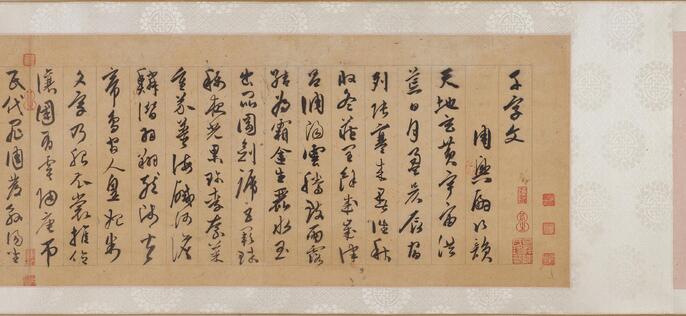 千字文
周興嗣次韻
天地玄黃宇宙洪
荒日月盈昃辰宿
列張寒来暑往秋
收冬藏閏餘成歲律
呂調陽雲騰致雨露
結為霜金生麗水玉
出崑岡劍號巨闕珠
稱夜光果珍李柰菜
重芥薑海鹹河淡
鱗潛羽翔龍師火
帝鳥官人皇始制
文字乃服衣裳推位
讓國有虞陶唐弔
民伐罪周發殷湯坐